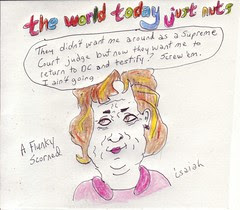 the world today just nuts
They didn't want me around as a Supreme
Court judge but now they want me to
return to DC and testify? Screw 'em.
I ain't going.
A Flunky
Scorned
isaiah